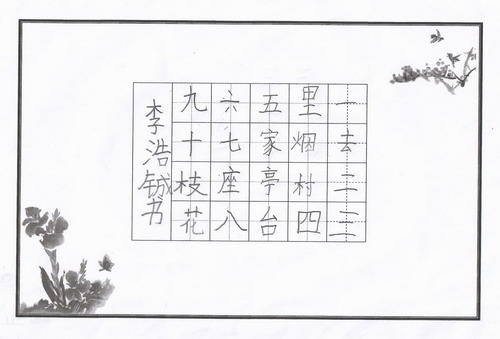 一去二三
里烟村四
五家亭台
六七座八
九十枝花
李浩铖书